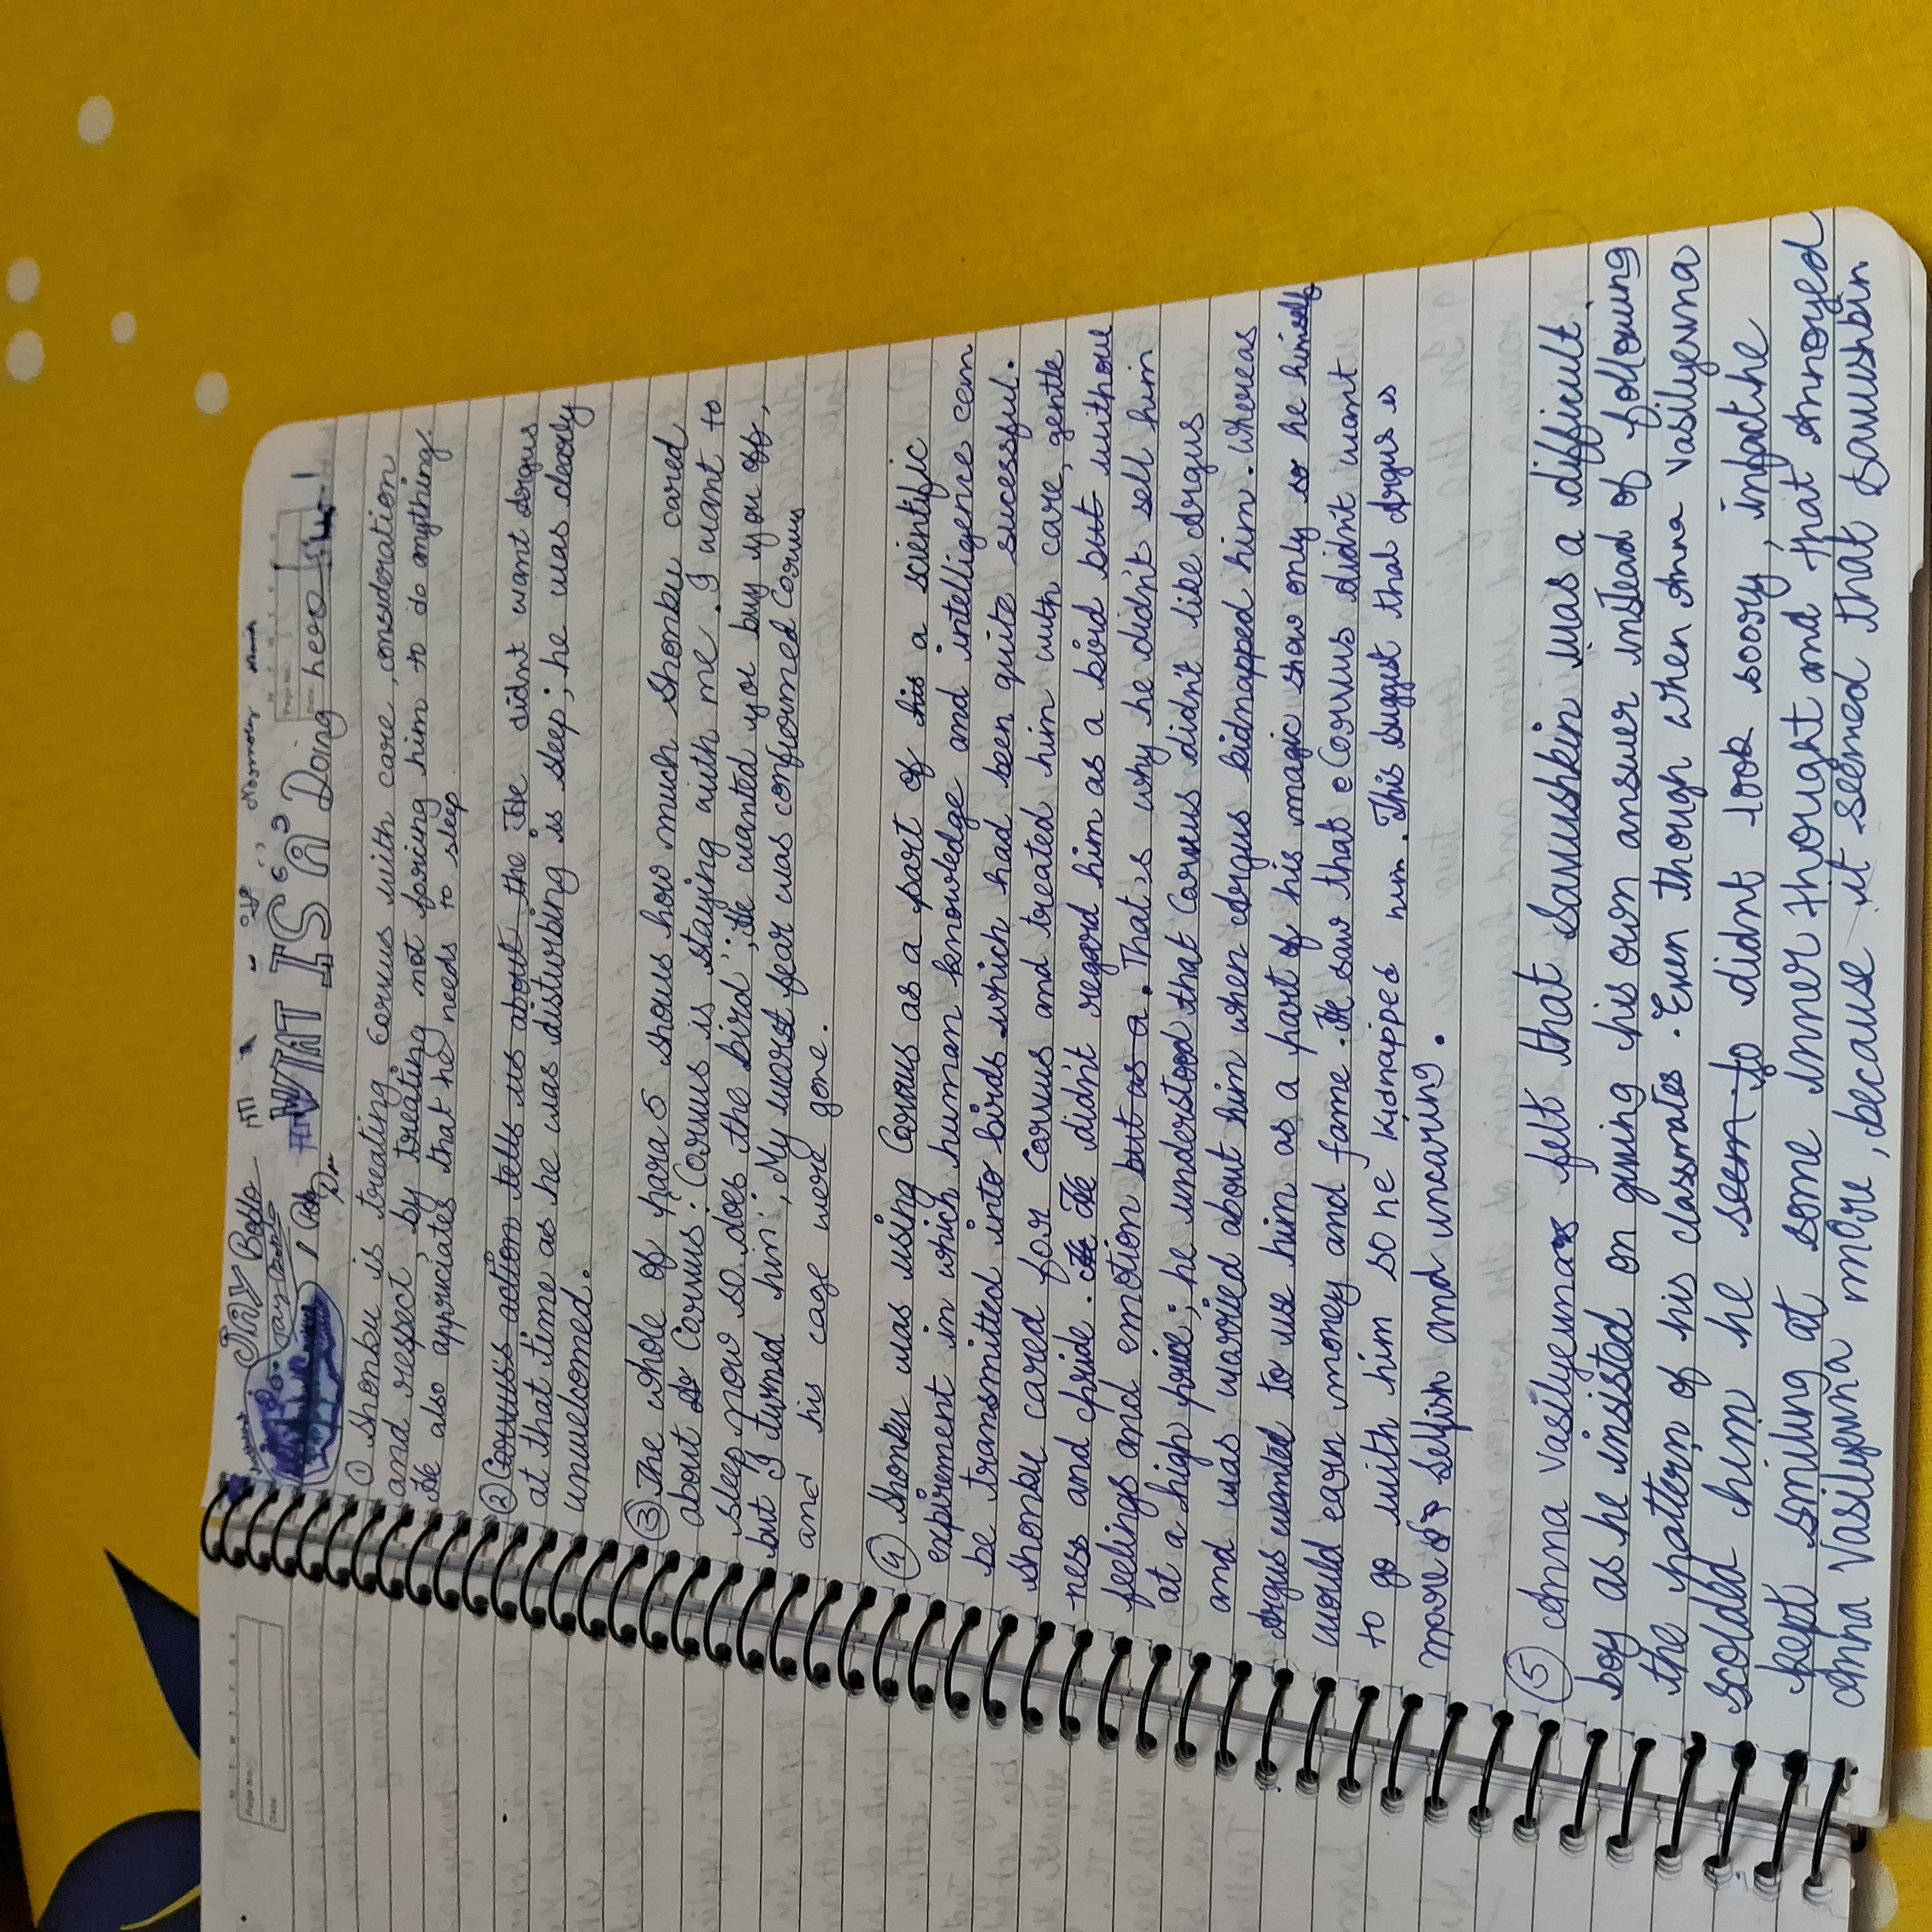 Tiny Boto
Doing here
① Shonku is treating Corvus with care, consideration
and respect, by treating not forcing him to do anything.
He also appriciates that he needs to slep
② Corvus's action tells us about the He didnt want Argus
at that time as he was disturbing is sleep; he was clearly
unwelcomed.
③ The whole of para 5 shows how much Shonku cared
about Corvus: 'Corvus is staying with me. I want to
sleep now so does the bird'; 'He wanted yot buy you off,
but I turned him'; 'My worst fear was confirmed Corvus
and his cage were gone.
④ Shonku was using Corvus as a part of his a scientific
expirement in which human knowledge and intelligence can
be transmitted into birds which had been quite sucessful.
Shonku cared for Corvus and treated him with care, gentle
ness and pride. He didn't regard him as a bird but without
feelings and emotion but as a. That is why he didn't sell him
at a high price; he understood that Corvus didn't like Argus
and was worried about him when Argus kidnapped him. Whereas
Argus wanted to use him as a part of his magic show only so he himself
would earn money and fame. He saw that Corvus didn't want
to go with him so he kidnapped him. This suggest that Argus is
more selfish and uncaring.
⑤ Anna Vasilyevna felt that Savushkin was a difficult
boy as he insisted on giving his own answer instead of following
the pattern of his classmates. Even though when Anna Vasilyevna
scolded him he seem to didnt look soory, infact he
kept smiling at some inner thought and that annoyed
Anna Vasilyevna more, because it seemed that Savushkin